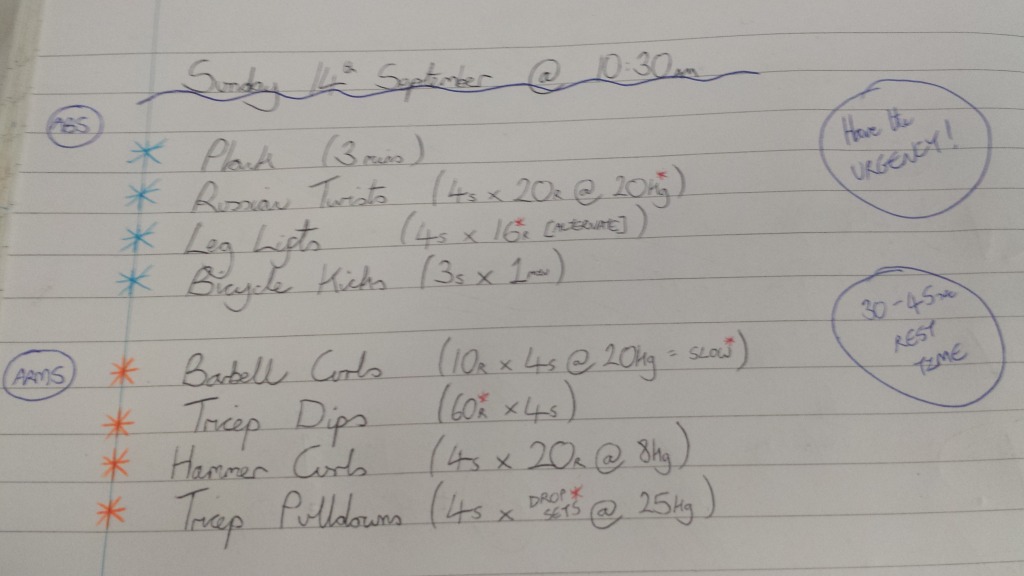 Sunday 14th September @ 10:30am
ABS
Plank (3 mins)
Russian Twists (4s x 20R @ 20Kg*)
Leg Lifts (4s x 16R* [ALTERNATE])
Bicycle Kicks (3s x 1min)
Have the
URGENCY!
30-45sec
REST
TIME
ARMS
Barbell Curls (10R x 4s @ 20Kg = SLOW*)
Tricep Dips (60R* x 4s)
Hammer Curls (4s x 20R @ 8Kg)
Tricep Pulldowns (4s x DROP SETS* @ 25Kg)